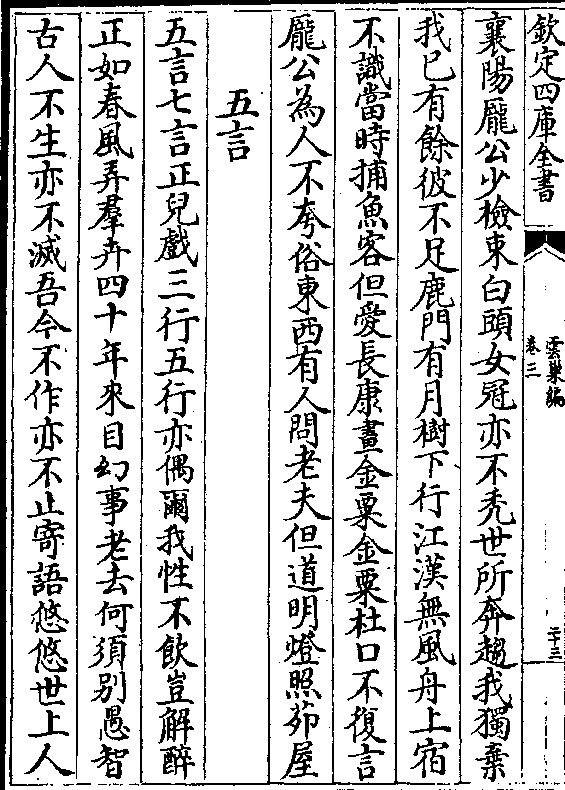 欽定四庫全書
雲巢編
卷三
二十三
襄陽龎公少檢束白頭女冠亦不秃世所奔趨我獨棄
我已有餘彼不足鹿門有月樹下行江漢無風舟上宿
不識當時捕魚客但愛長康畫金粟金粟杜口不復言
龎公為人不夸俗東西有人問老夫但道明燈照茆屋
五言
五言七言正兒戲三行五行亦偶爾我性不飲豈解醉
正如春風弄羣卉四十年來目幻事老去何須别愚智
古人不生亦不滅吾今不作亦不止寄語悠悠世上人